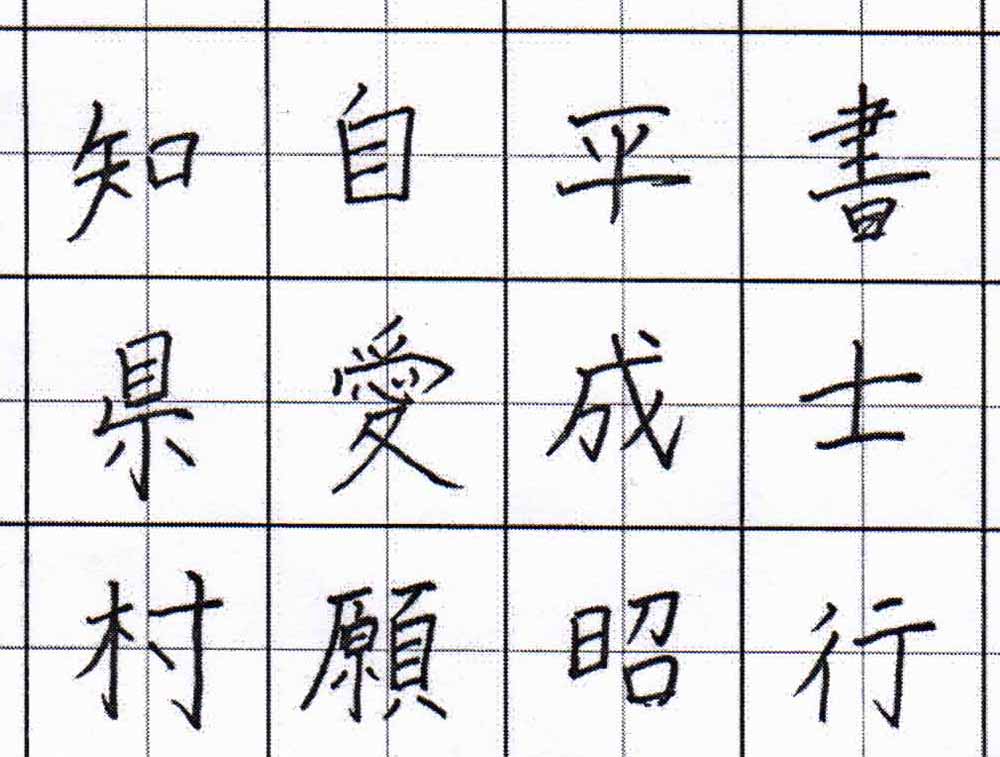 書士行
平成昭
自愛願
知県村